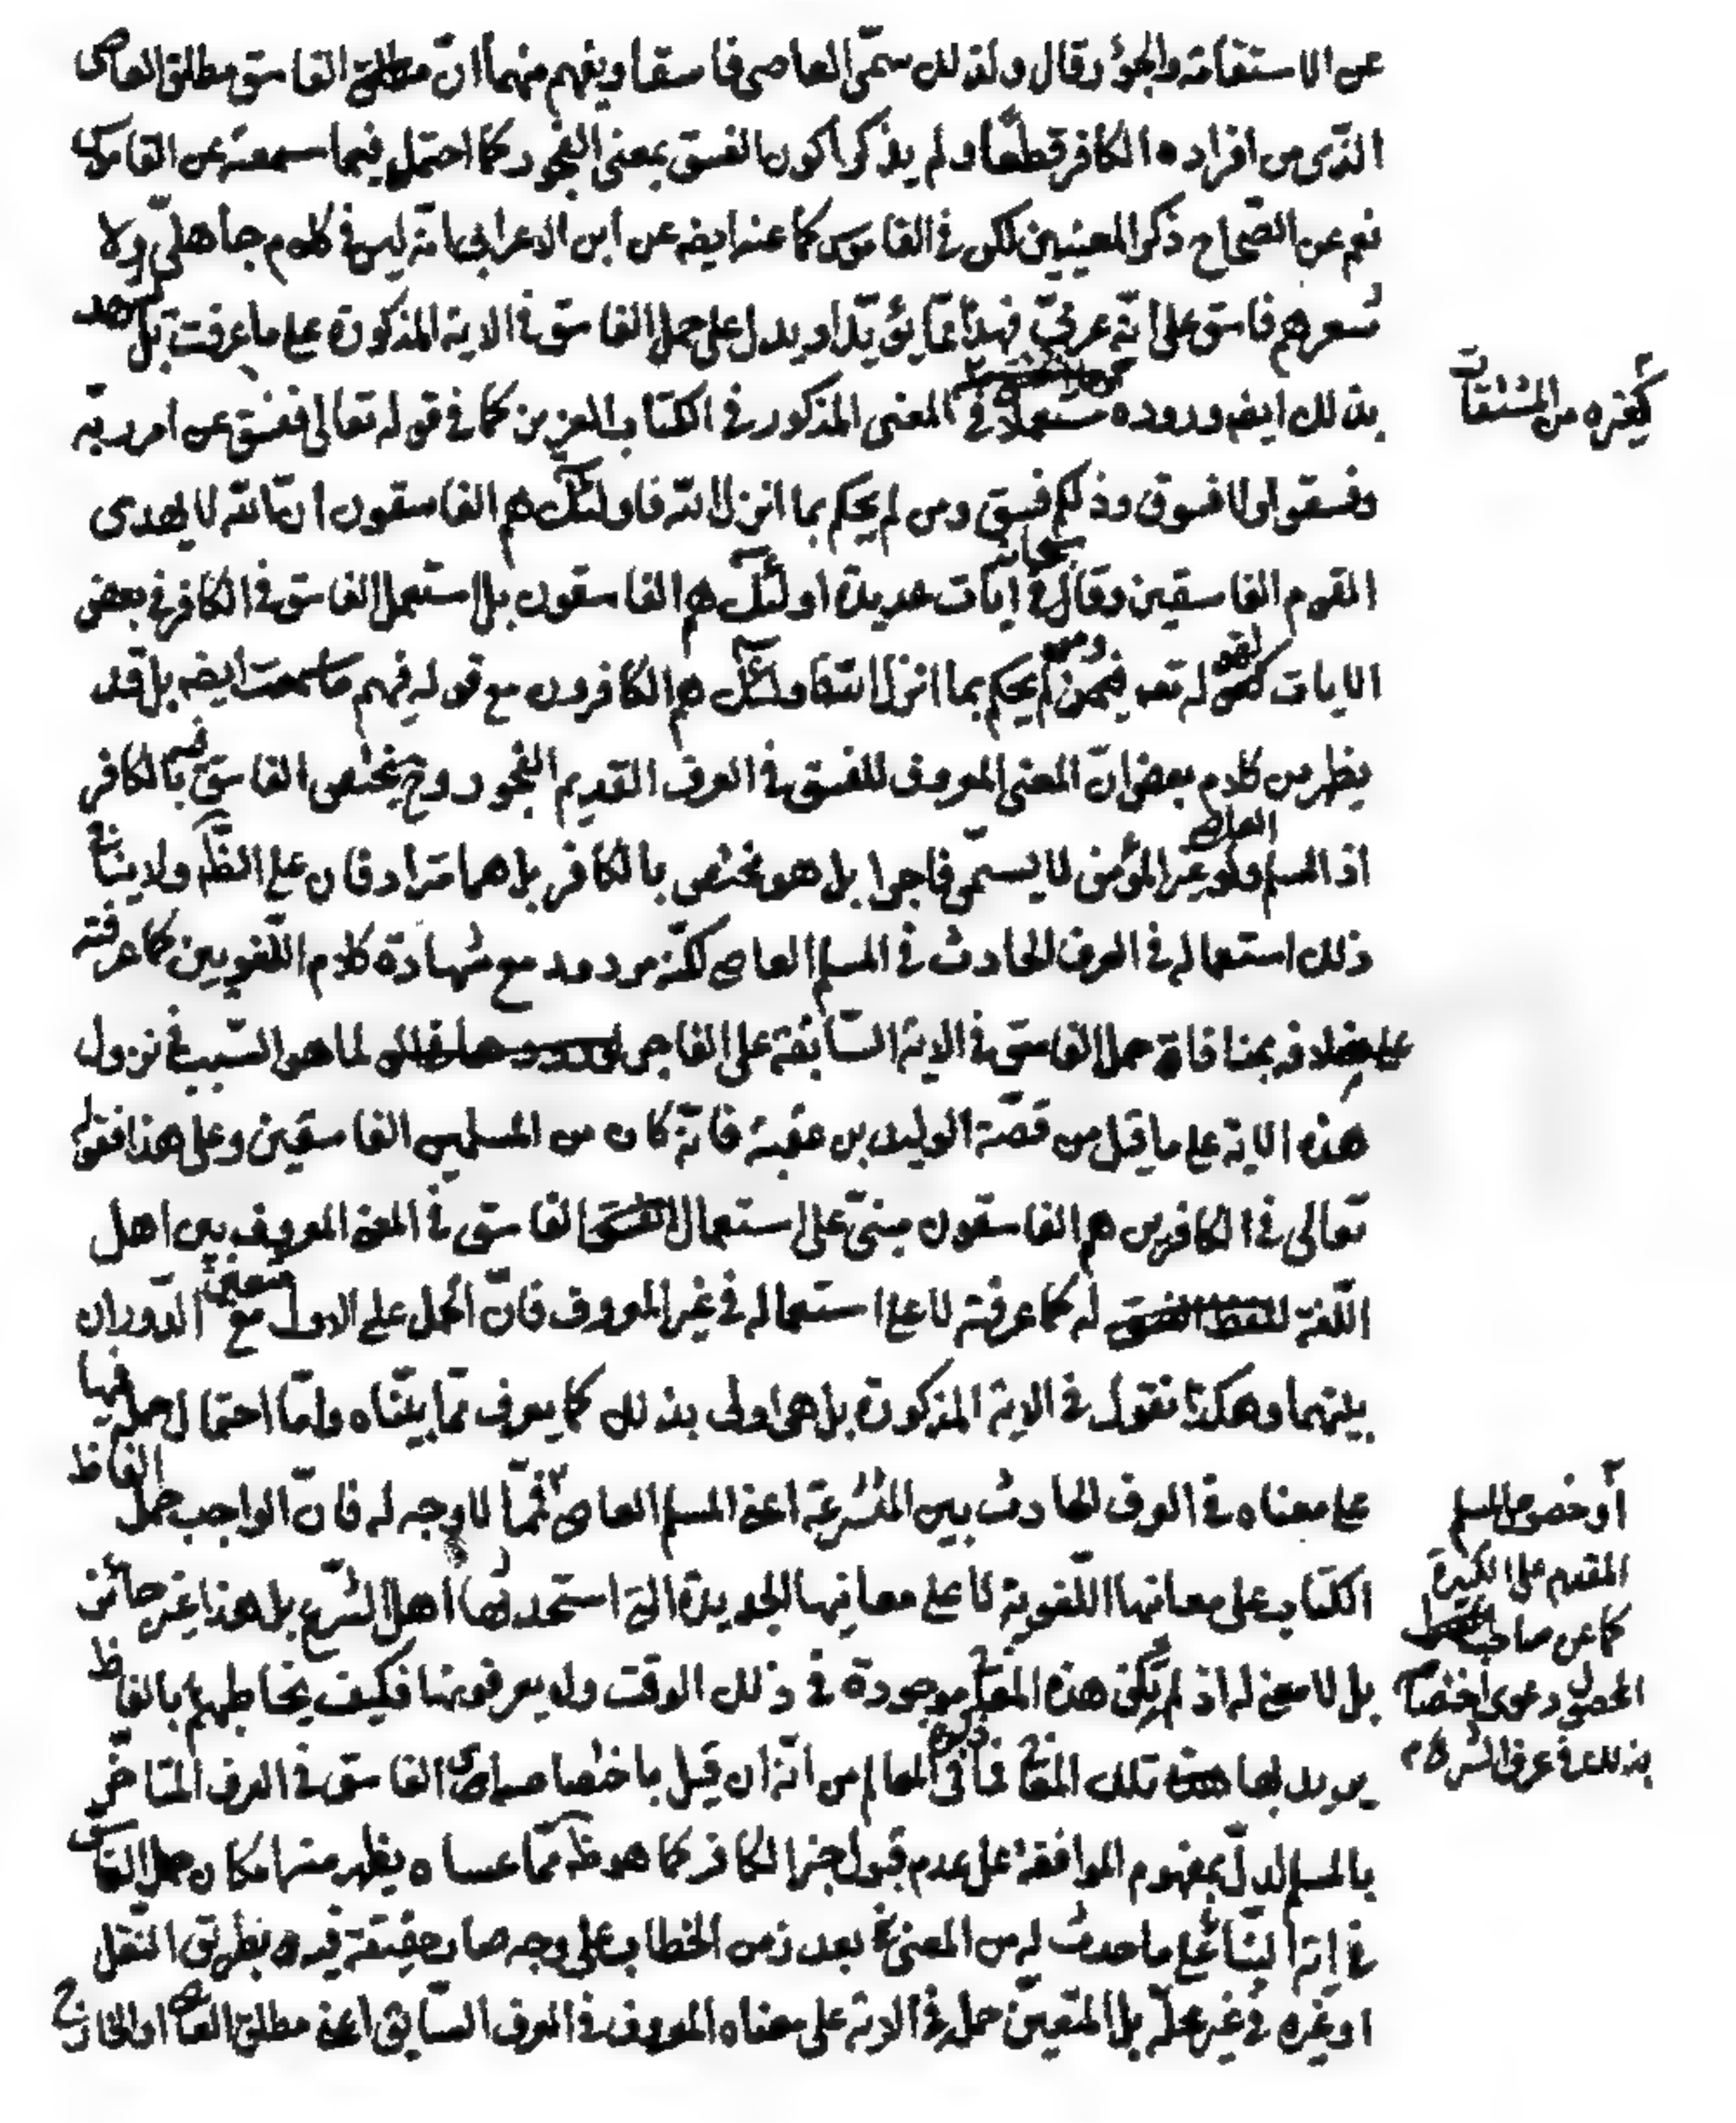 عن الاستقامة والجؤر وقال ولذلك سمّى العاصى فاسقا ويفهم منهما انّ الفاسق مطلق العاصى
الذى من افراده الكافر قطعا ولم يذكرا كون الفسق بمعنى الفجور كما احتمل فيما سمعته عن القاموس
نعم عن الصّحاح ذكر المعنيين لكن فى القاموس كما عنه ايضه عن ابن الاعرابى انه ليس فى كلام جاهلىّ ولا
شعرهم فاسق على انّه عربىّ فهذا ممّا يؤيّد او يدل على حمل الفاسق فى الاية المذكورة على ما عرفت بل يشهد
بذلك ايضه وروده مستعملا فى المعنى المذكور فى الكتاب العزيز كما فى قوله تعالى ففسق عن امر ربّه
كغيره من المشتقات
وفسقوا ولا فسوق وذلكم فسق ومن لم يحكم بما انزل الله فاولئك هم الفاسقون انّ الله لا يهدى
القوم الفاسقين وقال سبحانه فى ايات عديدة اولئك هم الفاسقون بل استعمل الفاسق فى الكافر فى بعض
الايات لقوله تعه ومن لم يحكم بما انزل الله فاولئك هم الكافرون مع قوله فيهم ما سمعت ايضه بل قد
يظهر من كلام بعض انّ المعنى المعروف للفسق فى العرف القديم الفجور وح يختص الفاسق فيه بالكافر
اذ المسلم ولو غير المؤمن العاصى لا يسمّى فاجرا بل هو مختص بالكافر بل هما مترادفان على الظّه ولا ينافى
ذلك استعماله فى العرف الحادث فى المسلم العاصى لكنّه مردود مع شهادة كلام اللّغويين كما عرفته
على خلافه بمنافاة حمل الفاسق فى الاية السّابقة على الفاجر لما هو السّبب فى نزول
هذه الاية على ما قيل من قصّة الوليد بن عقبة فانّه كان من المسلمين الفاسقين وعلى هذا فقوله
تعالى فى الكافرين هم الفاسقون مبنىّ على استعمال الفاسق فى المعنى المعروف بين اهل
اللّغة له كما عرفته لا على استعماله فى غير المعروف فانّ الحمل على الاول متعيّن مع الدّوران
بينهما وهكذا نقول فى الاية المذكورة بل هى اولى بذلك كما يعرف ممّا بيّنّاه وامّا احتمال حمله فيها
على معناه فى العرف الحادث بين المتشرعة اعنى المسلم العاصى فممّا لا وجه له فانّ الواجب حمل الفاظ
أو خصوص المسلم
المقدم على الكبيرة
كما عن صاحب
المحصول دعوى اختصاصه
بذلك فى عرف الشرع م
الكتاب على معانيها اللّغوية لا على معانيها الجديدة التى استحدثها اهل الشّرع بل هذا غير جائز
بل لا معنى له اذ لم تكن هذه المعانى موجودة فى ذلك الوقت ولا يعرفونها فكيف يخاطبهم بالفاظ
يريد بها تلك المعانى فما فى المعالم من انّه ان قيل باختصاص الفاسق فى العرف المتاخّر
بالمسلم لدلّ بمفهوم الموافقة على عدم قبول خبر الكافر كما هو ظّه ممّا عساه يظهر منه امكان حمل الفاسق
فى اية النّبأ على ما حدث له من المعنى بعد زمن الخطاب على وجه صار حقيقة فيه بطريق النّقل
او غيره فى غير محلّه بل المتعيّن حمله فى الاية على معناه المعروف فى العرف السّابق اعنى مطلق العاصى او الخارج